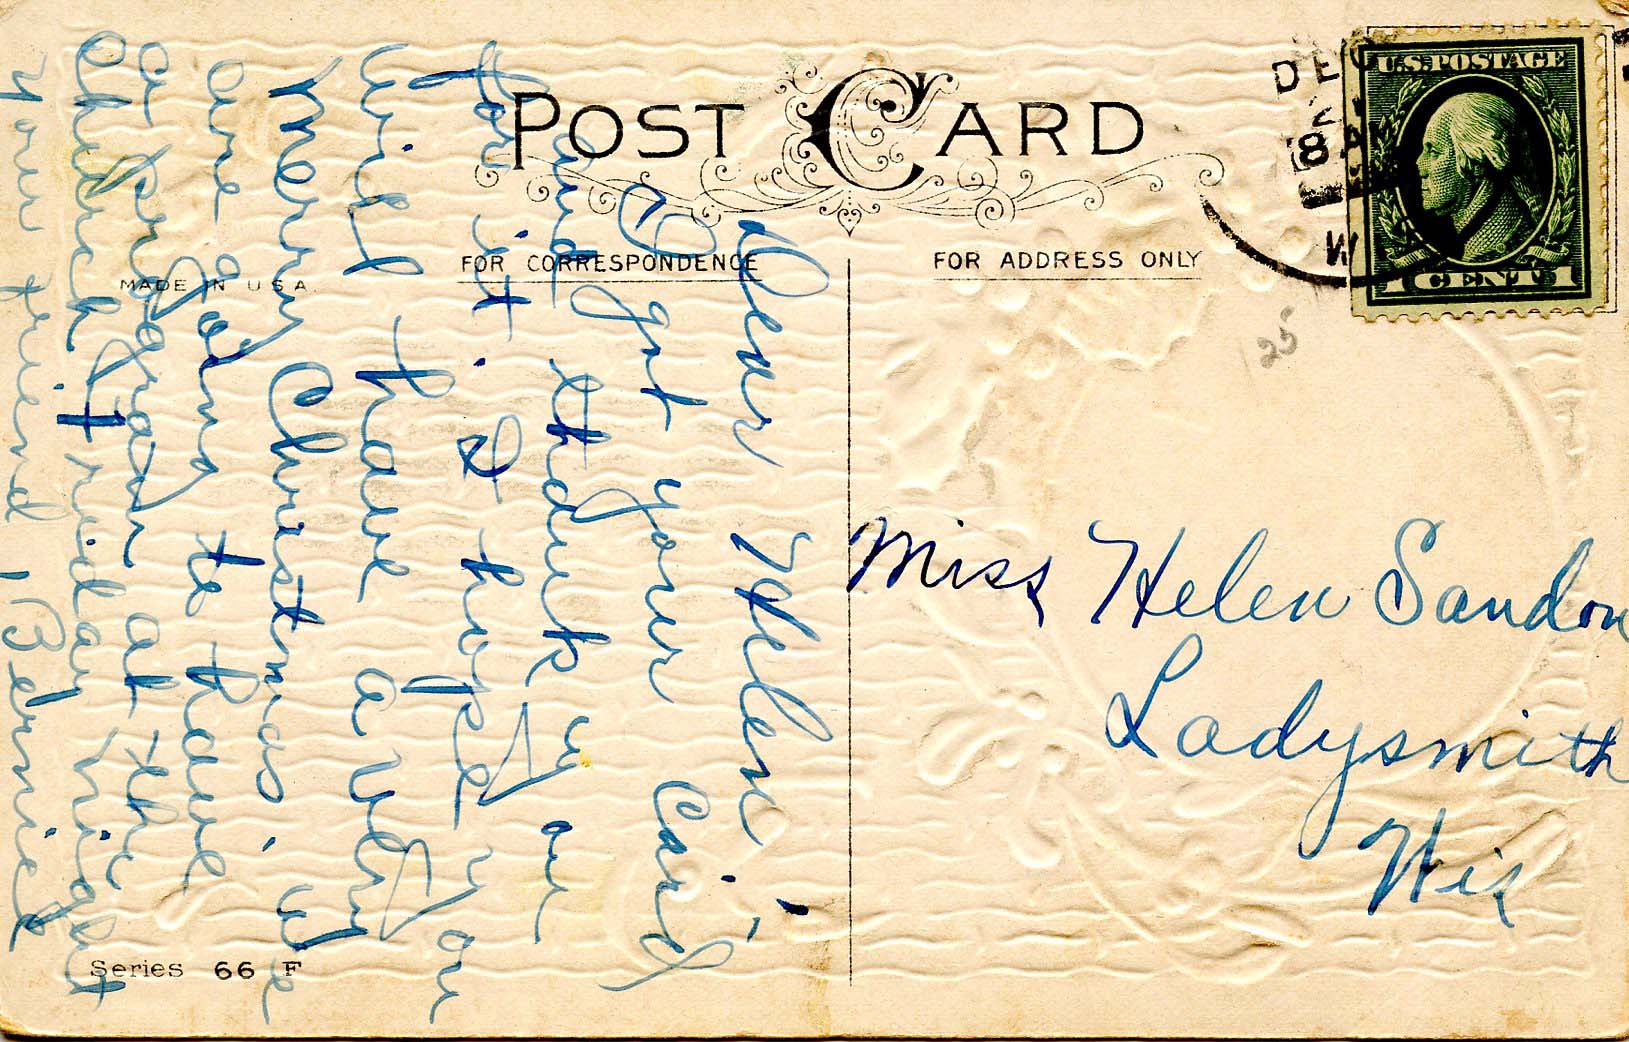 POST CARD
FOR CORRESPONDENCE
FOR ADDRESS ONLY
MADE IN U S A.
Series 66 F
U.S. POSTAGE
1 CENT 1
DEC
8 AM
W
25
Miss Helen Sandon
Ladysmith
Wis
Dear Helen:
I got your card
and thank you
for it. I hope you
will have a very
Merry Christmas. We
are going to have
a program at the
church Friday night
your friend, Bernice